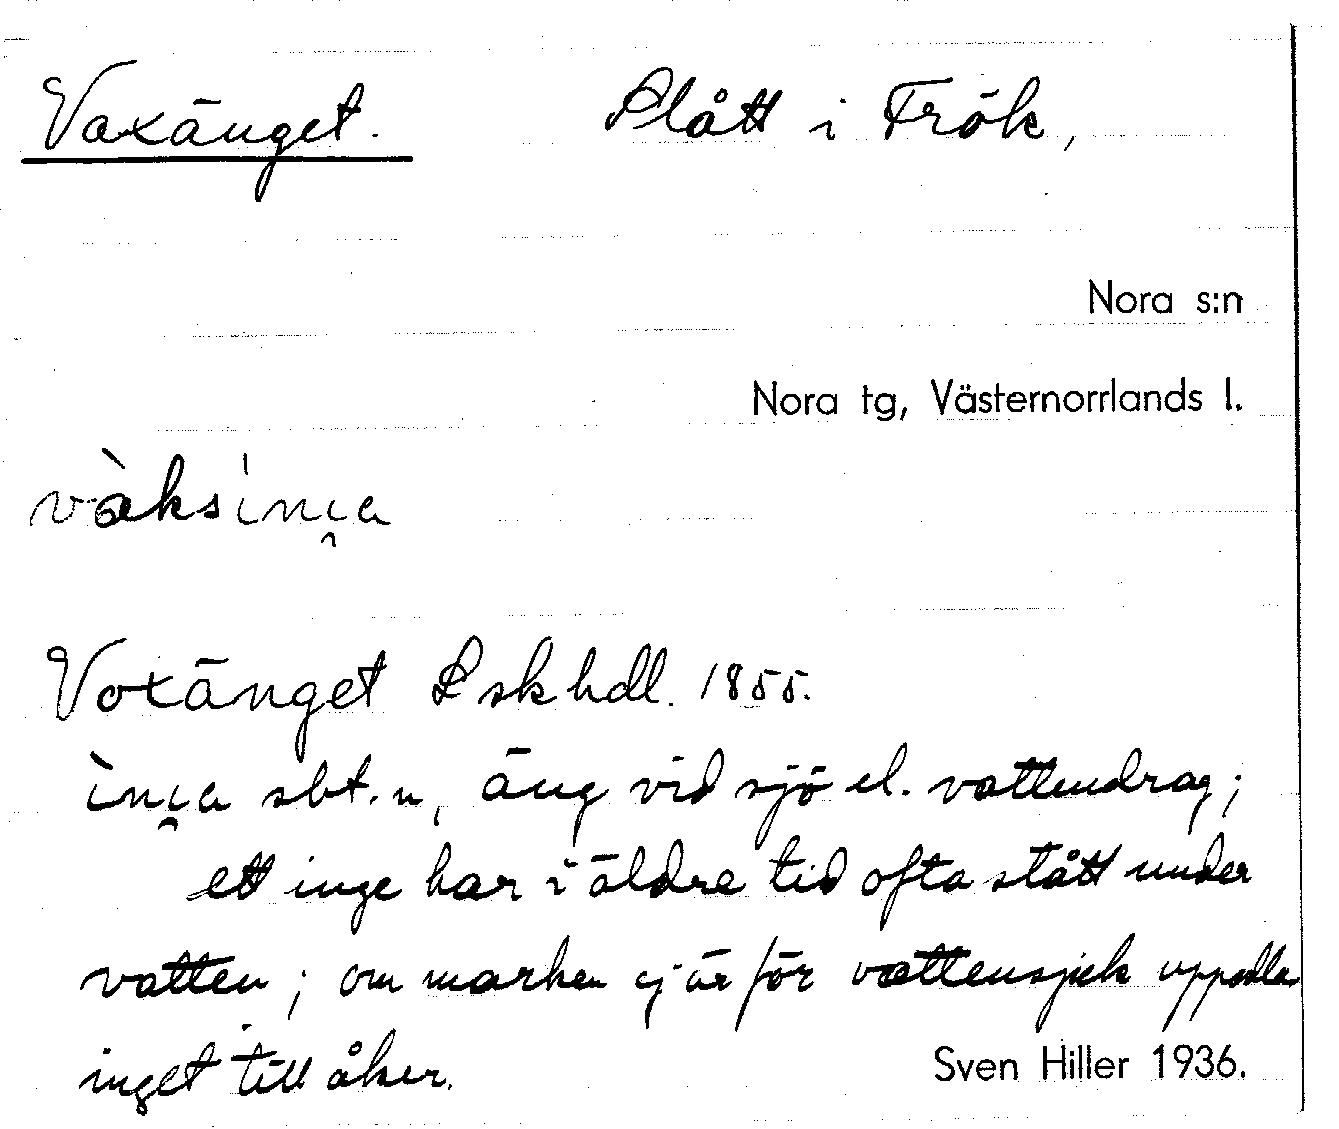 Vaxänget. Slått i Frök,
Nora s:n
Nora tg, Västernorrlands l.
vàksinı̯a
Voxänget L sk hdl. 1855.
ìnı̯a sbt. n, äng vid sjö el. vattendrag;
ett inge har i äldre tid ofta stått under
vatten; om marken ej är för vattensjuk uppodlas
inget till åker.
Sven Hiller 1936.